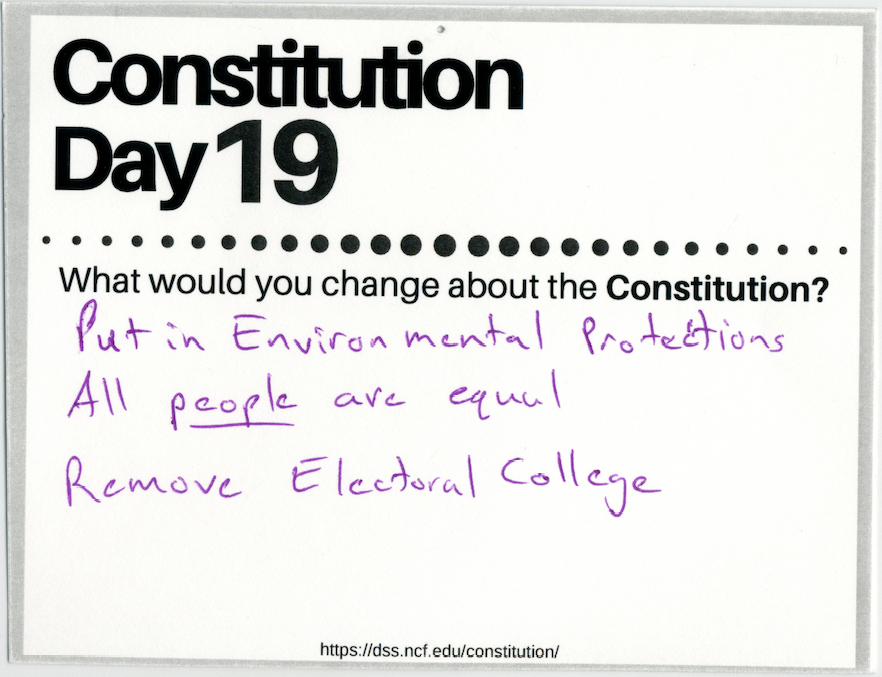 Constitution
Day 19
What would you change about the Constitution?
Put in Environmental Protections
All people are equal
Remove Electoral College
https://dss.ncf.edu/constitution/